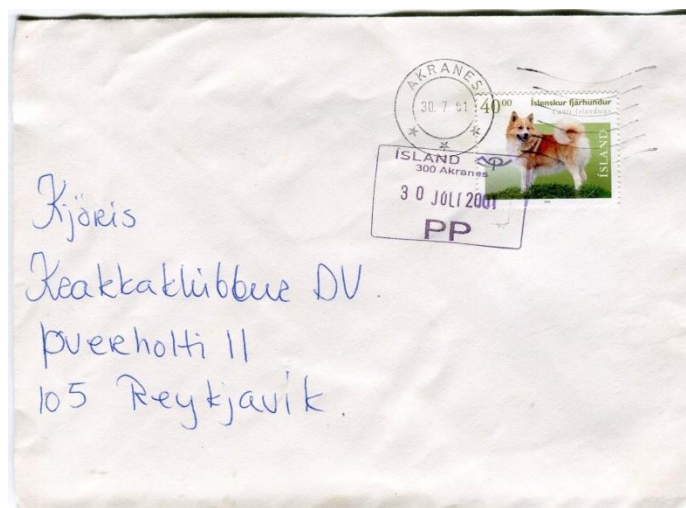 AKRANES
30. 7 01
40⁰⁰ Íslenskur fjárhundur
Canis Islandicus
ÍSLAND
ÍSLAND
300 Akranes
30 JÚLÍ 2001
PP
Kjöris
Krakkaklúbbur DV.
Þverholti 11
105 Reykjavík.